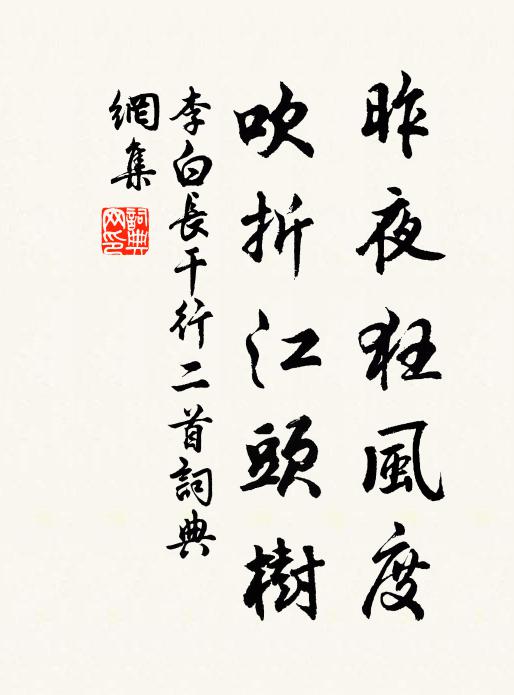 昨夜狂風度
吹折江頭樹
李白長干行二首詞典
網集
詞典网印